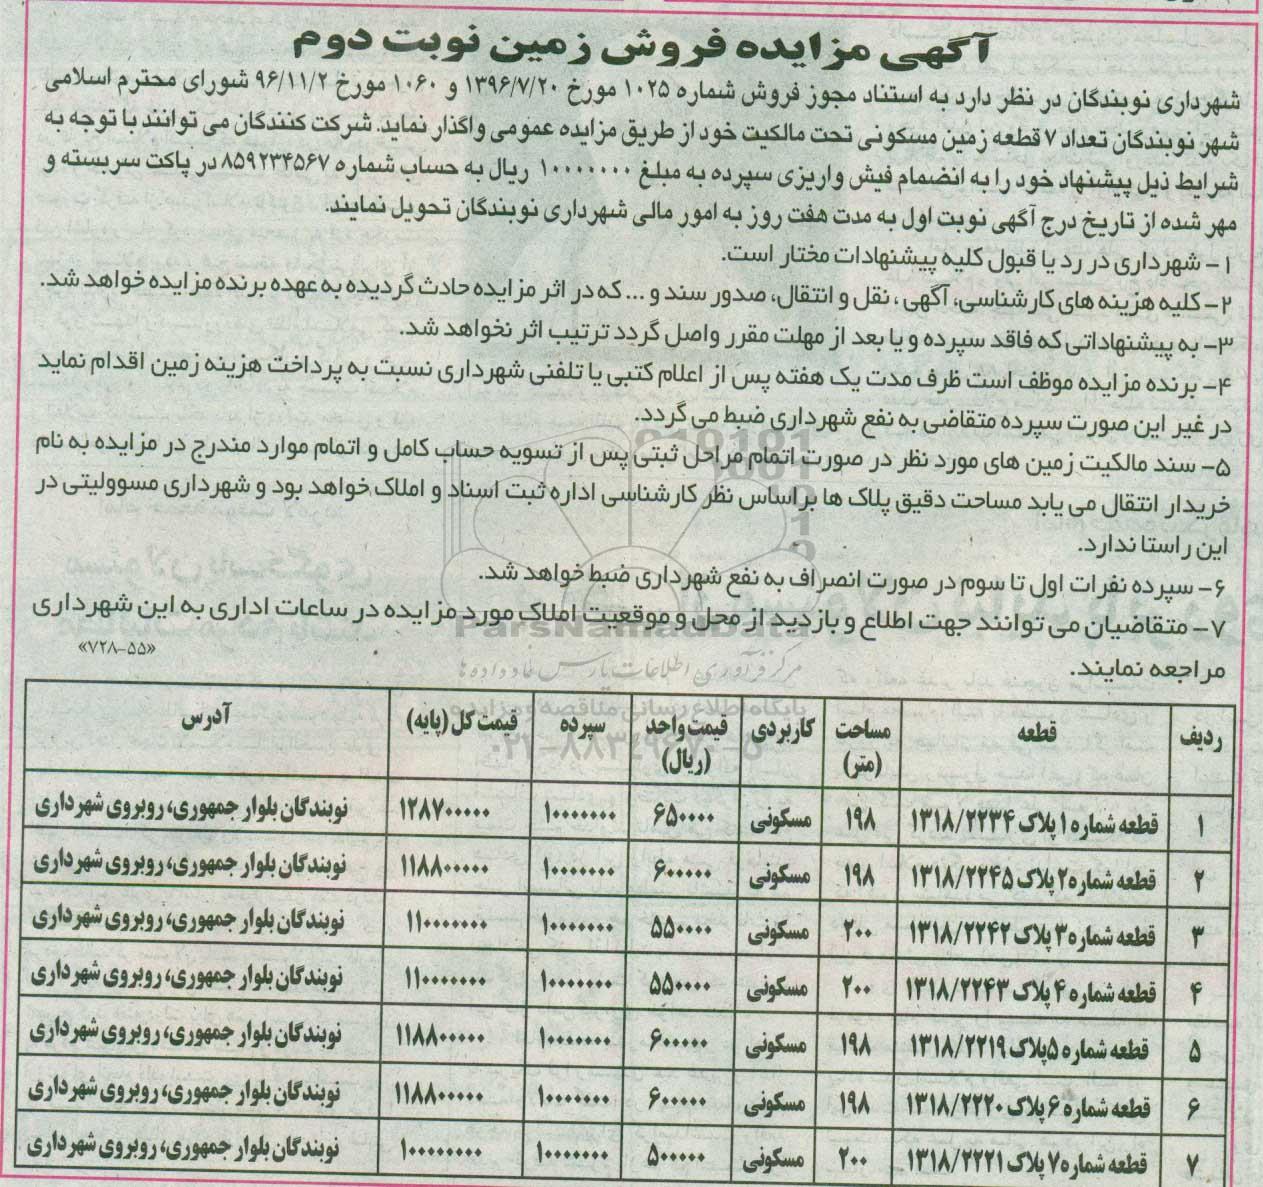 آگهی مزایده فروش زمین نوبت دوم
شهرداری نوبندگان در نظر دارد به استناد مجوز فروش شماره ۱۰۲۵ مورخ ۱۳۹۶/۷/۲۰ و ۱۰۶۰ مورخ ۹۶/۱۱/۲ شورای محترم اسلامی
شهر نوبندگان تعداد ۷ قطعه زمین مسکونی تحت مالکیت خود از طریق مزایده عمومی واگذار نماید. شرکت کنندگان می توانند با توجه به
شرایط ذیل پیشنهاد خود را به انضمام فیش واریزی سپرده به مبلغ ۱۰۰۰۰۰۰۰ ریال به حساب شماره ۸۵۹۲۳۴۵۶۷ در پاکت سربسته و
مهر شده از تاریخ درج آگهی نوبت اول به مدت هفت روز به امور مالی شهرداری نوبندگان تحویل نمایند.
۱- شهرداری در رد یا قبول کلیه پیشنهادات مختار است.
۲- کلیه هزینه های کارشناسی، آگهی، نقل و انتقال، صدور سند و ... که در اثر مزایده حادث گردیده به عهده برنده مزایده خواهد شد.
۳- به پیشنهاداتی که فاقد سپرده و یا بعد از مهلت مقرر واصل گردد ترتیب اثر نخواهد شد.
۴- برنده مزایده موظف است ظرف مدت یک هفته پس از اعلام کتبی یا تلفنی شهرداری نسبت به پرداخت هزینه زمین اقدام نماید
در غیر این صورت سپرده متقاضی به نفع شهرداری ضبط می گردد.
۵- سند مالکیت زمین های مورد نظر در صورت اتمام مراحل ثبتی پس از تسویه حساب کامل و اتمام موارد مندرج در مزایده به نام
خریدار انتقال می یابد مساحت دقیق پلاک ها براساس نظر کارشناسی اداره ثبت اسناد و املاک خواهد بود و شهرداری مسوولیتی در
این راستا ندارد.
۶- سپرده نفرات اول تا سوم در صورت انصراف به نفع شهرداری ضبط خواهد شد.
۷- متقاضیان می توانند جهت اطلاع و بازدید از محل و موقعیت املاک مورد مزایده در ساعات اداری به این شهرداری
مراجعه نمایند. «۷۲۸-۵۵»
ParsNamadData
مرکز فرآوری اطلاعات پارس نماد داده ها
پایگاه اطلاع رسانی مناقصه و مزایده
۰۲۱-۸۸۳۴۹۶۷۰-۵
ردیف قطعه مساحت (متر) کاربردی قیمت واحد (ریال) سپرده قیمت کل (پایه) آدرس
۱ قطعه شماره ۱ پلاک ۱۳۱۸/۲۲۳۴ ۱۹۸ مسکونی ۶۵۰۰۰۰ ۱۰۰۰۰۰۰۰ ۱۲۸۷۰۰۰۰۰ نوبندگان بلوار جمهوری، روبروی شهرداری
۲ قطعه شماره ۲ پلاک ۱۳۱۸/۲۲۴۵ ۱۹۸ مسکونی ۶۰۰۰۰۰ ۱۰۰۰۰۰۰۰ ۱۱۸۸۰۰۰۰۰ نوبندگان بلوار جمهوری، روبروی شهرداری
۳ قطعه شماره ۳ پلاک ۱۳۱۸/۲۲۴۲ ۲۰۰ مسکونی ۵۵۰۰۰۰ ۱۰۰۰۰۰۰۰ ۱۱۰۰۰۰۰۰۰ نوبندگان بلوار جمهوری، روبروی شهرداری
۴ قطعه شماره ۴ پلاک ۱۳۱۸/۲۲۴۳ ۲۰۰ مسکونی ۵۵۰۰۰۰ ۱۰۰۰۰۰۰۰ ۱۱۰۰۰۰۰۰۰ نوبندگان بلوار جمهوری، روبروی شهرداری
۵ قطعه شماره ۵ پلاک ۱۳۱۸/۲۲۱۹ ۱۹۸ مسکونی ۶۰۰۰۰۰ ۱۰۰۰۰۰۰۰ ۱۱۸۸۰۰۰۰۰ نوبندگان بلوار جمهوری، روبروی شهرداری
۶ قطعه شماره ۶ پلاک ۱۳۱۸/۲۲۲۰ ۱۹۸ مسکونی ۶۰۰۰۰۰ ۱۰۰۰۰۰۰۰ ۱۱۸۸۰۰۰۰۰ نوبندگان بلوار جمهوری، روبروی شهرداری
۷ قطعه شماره ۷ پلاک ۱۳۱۸/۲۲۲۱ ۲۰۰ مسکونی ۵۰۰۰۰۰ ۱۰۰۰۰۰۰۰ ۱۰۰۰۰۰۰۰۰ نوبندگان بلوار جمهوری، روبروی شهرداری